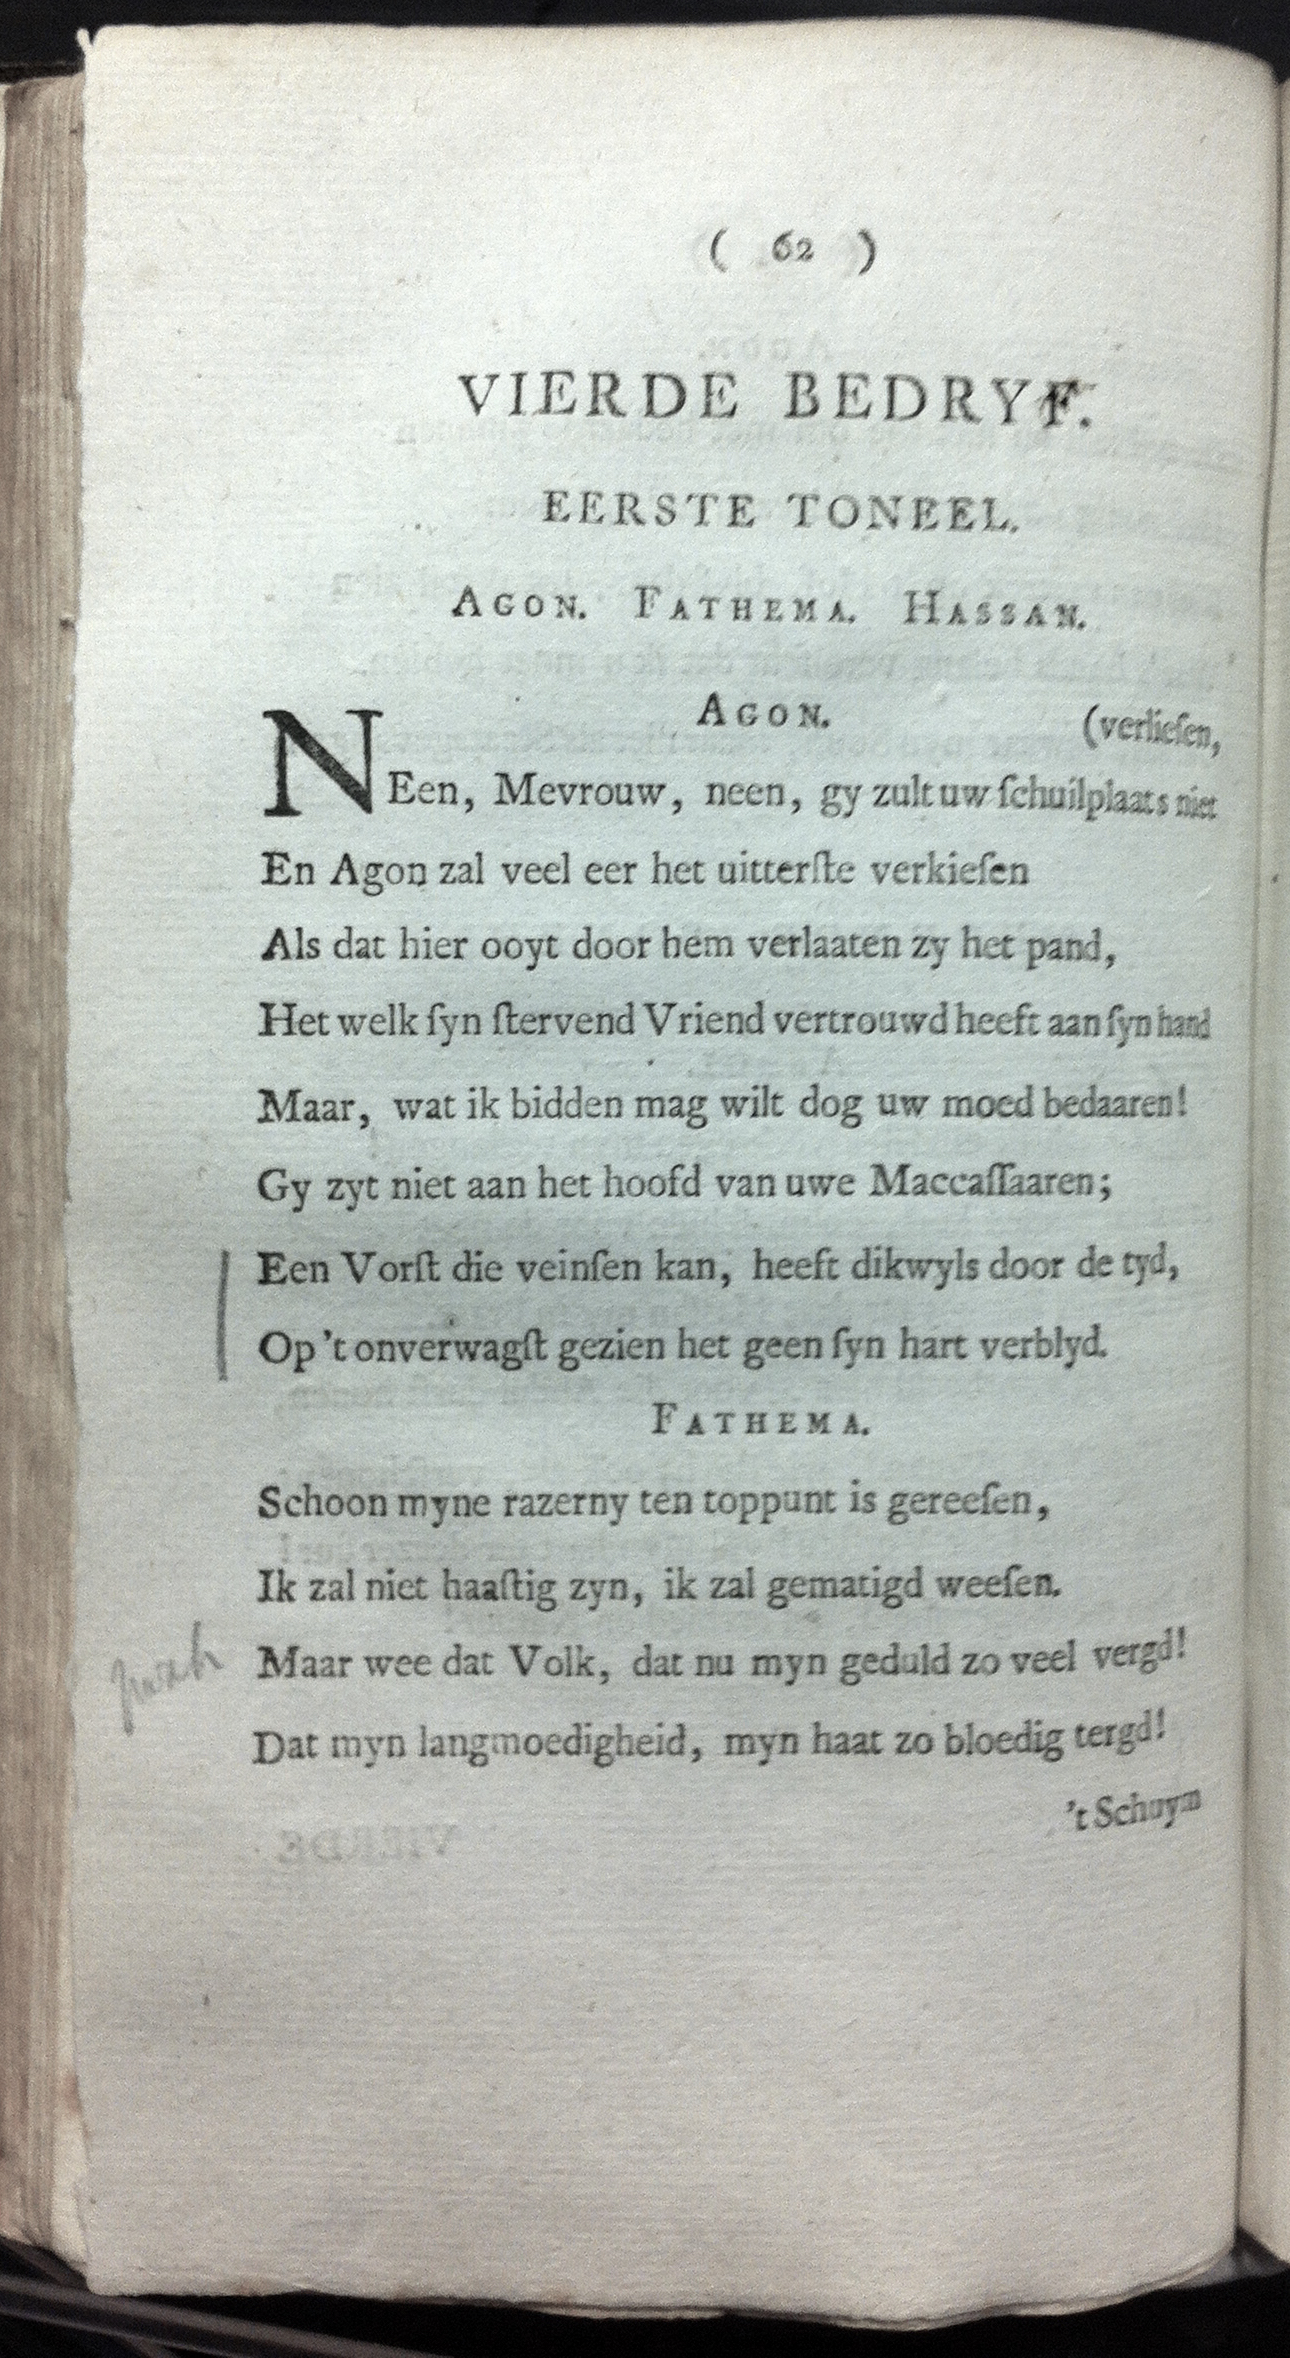 ( 62 )
VIERDE BEDRYF.
EERSTE TONEEL.
AGON. FATHEMA. HASSAN.
AGON.
(verlieſen,
NEen, Mevrouw, neen, gy zult uw ſchuilplaats niet
En Agon zal veel eer het uitterſte verkieſen
Als dat hier ooyt door hem verlaaten zy het pand,
Het welk ſyn ſtervend Vriend vertrouwd heeft aan ſyn hand
Maar, wat ik bidden mag wilt dog uw moed bedaaren!
Gy zyt niet aan het hoofd van uwe Maccaſſaaren;
Een Vorſt die veinſen kan, heeft dikwyls door de tyd,
Op 't onverwagſt gezien het geen ſyn hart verblyd.
FATHEMA.
Schoon myne razerny ten toppunt is gereeſen,
Ik zal niet haaſtig zyn, ik zal gematigd weeſen.
Maar wee dat Volk, dat nu myn geduld zo veel vergd!
Dat myn langmoedigheid, myn haat zo bloedig tergd!
't Schuym